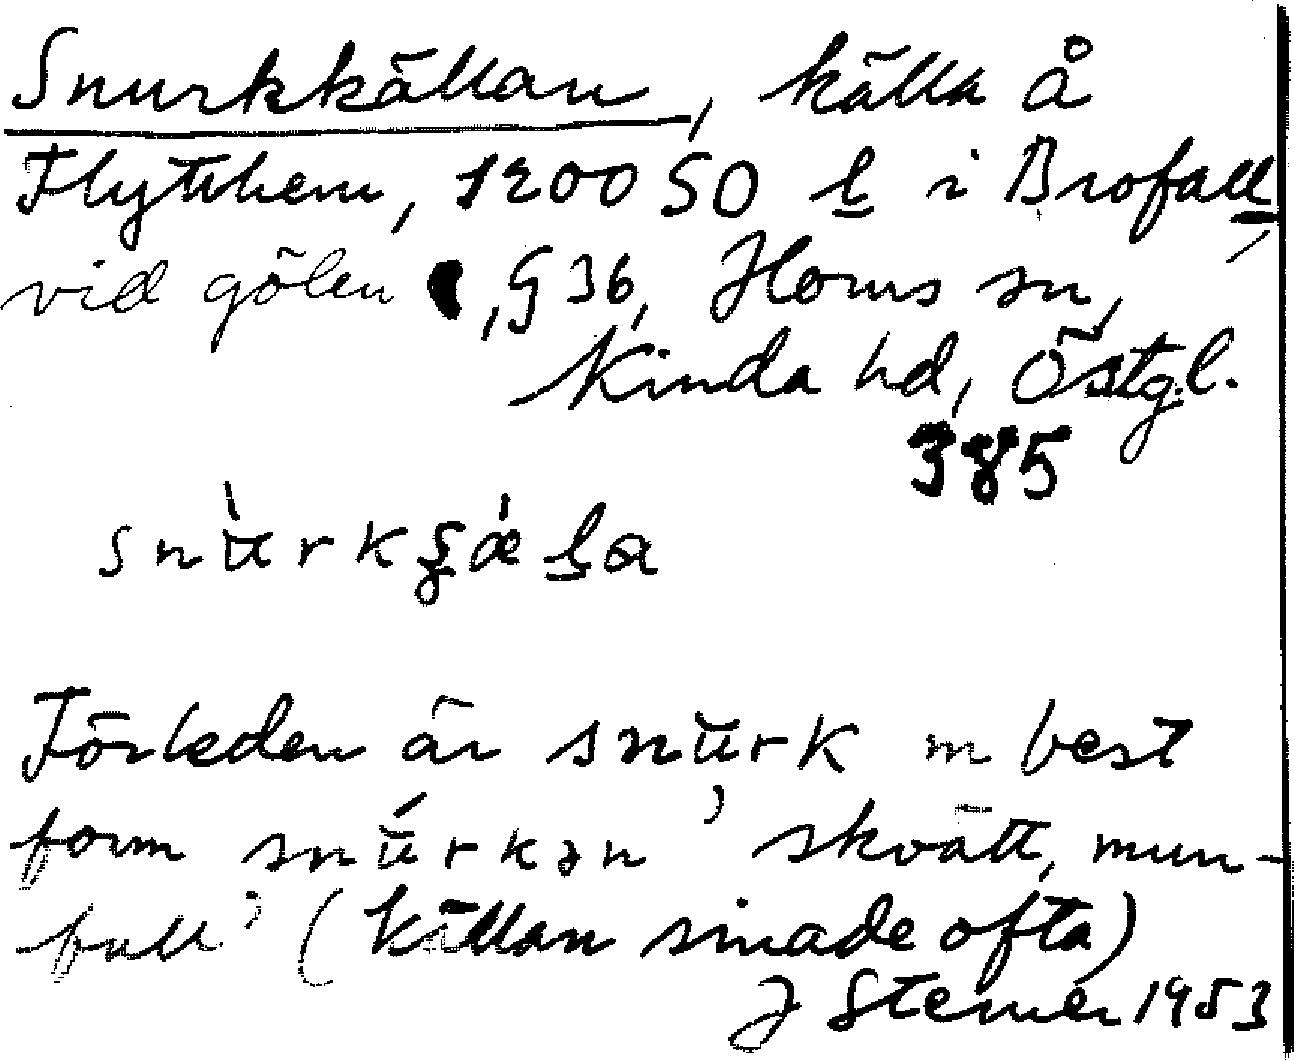 Snurkkällan, källa å
Flytthem, 120050 l i Brofall,
vid gölen, G 36, Horns sn,
Kinda hd, Östgl.
385
Förleden är snurk m best
form snúrkən 'skvätt, mun-
full' (källan sinade ofta)
J Steiner 1953